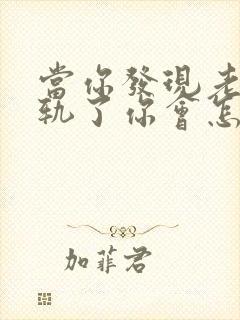 當你發現老
軌了你會怎
加菲君